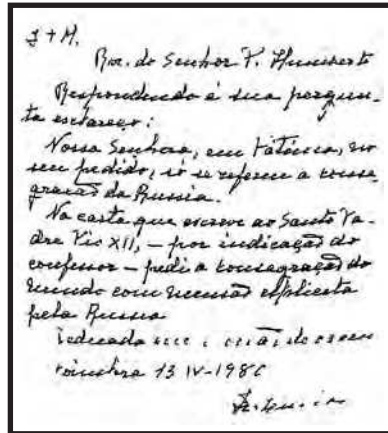 J + M.
Rev. do Senhor P. Humberto
Respondendo á sua pergun-
ta esclareço:
Nossa Senhora, em Fátima, no
seu pedido, só se referiu á consa-
gração da Russia.
Na carta que escrevi ao Santo Pa-
dre Pio XII, – por indicação do
confessor – pedi a consagração do
mundo com menção explicita
pela Russia
Coimbra 13 IV-1980